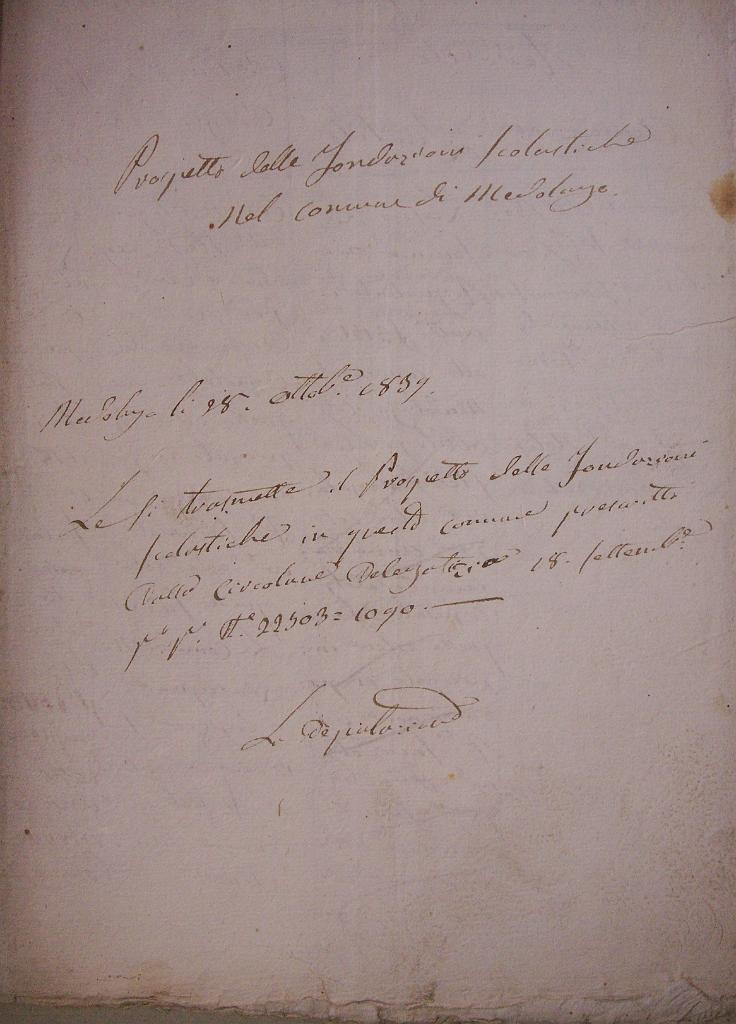 Prospetto delle Fondazioni scolastiche
Nel comune di Medolago.
Medolago li 28. Ottob.e 1839.
Le si trasmette il Prospetto delle Fondazioni
scolastiche in questo comune prescritto
dalla circolare Delegatizia 18. settemb.e
p.o p.o N.o 22503=1090.
La deputazione